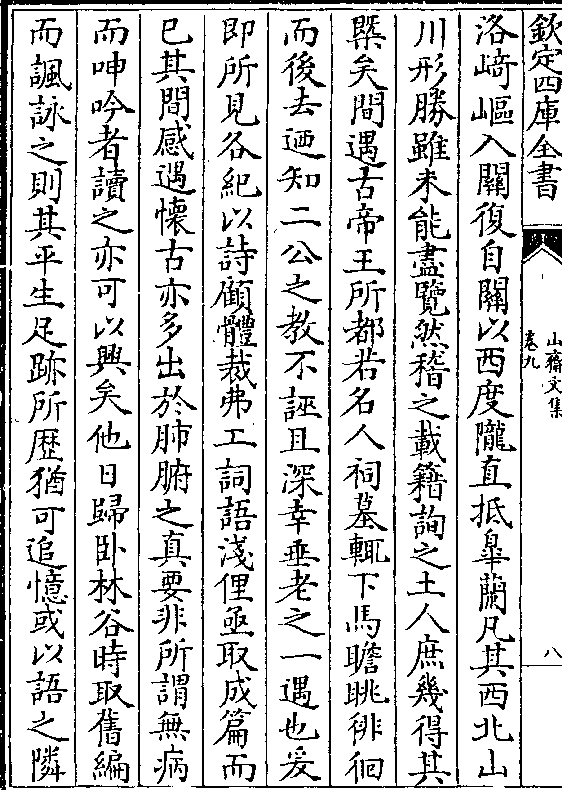 欽定四庫全書
山齋文集
卷九
八
洛﨑嶇入關復自關以西度隴直抵臯蘭凡其西北山
川形勝雖未能盡覽然稽之載籍詢之土人庶幾得其
槩矣間遇古帝王所都若名人祠墓輙下馬瞻眺徘徊
而後去廼知二公之教不誣且深幸垂老之一遇也爰
即所見各紀以詩顧體裁弗工詞語淺俚亟取成篇而
已其間感遇懐古亦多出於肺腑之真要非所謂無病
而呻吟者讀之亦可以興矣他日歸卧林谷時取舊編
而諷詠之則其平生足跡所歴猶可追憶或以語之隣